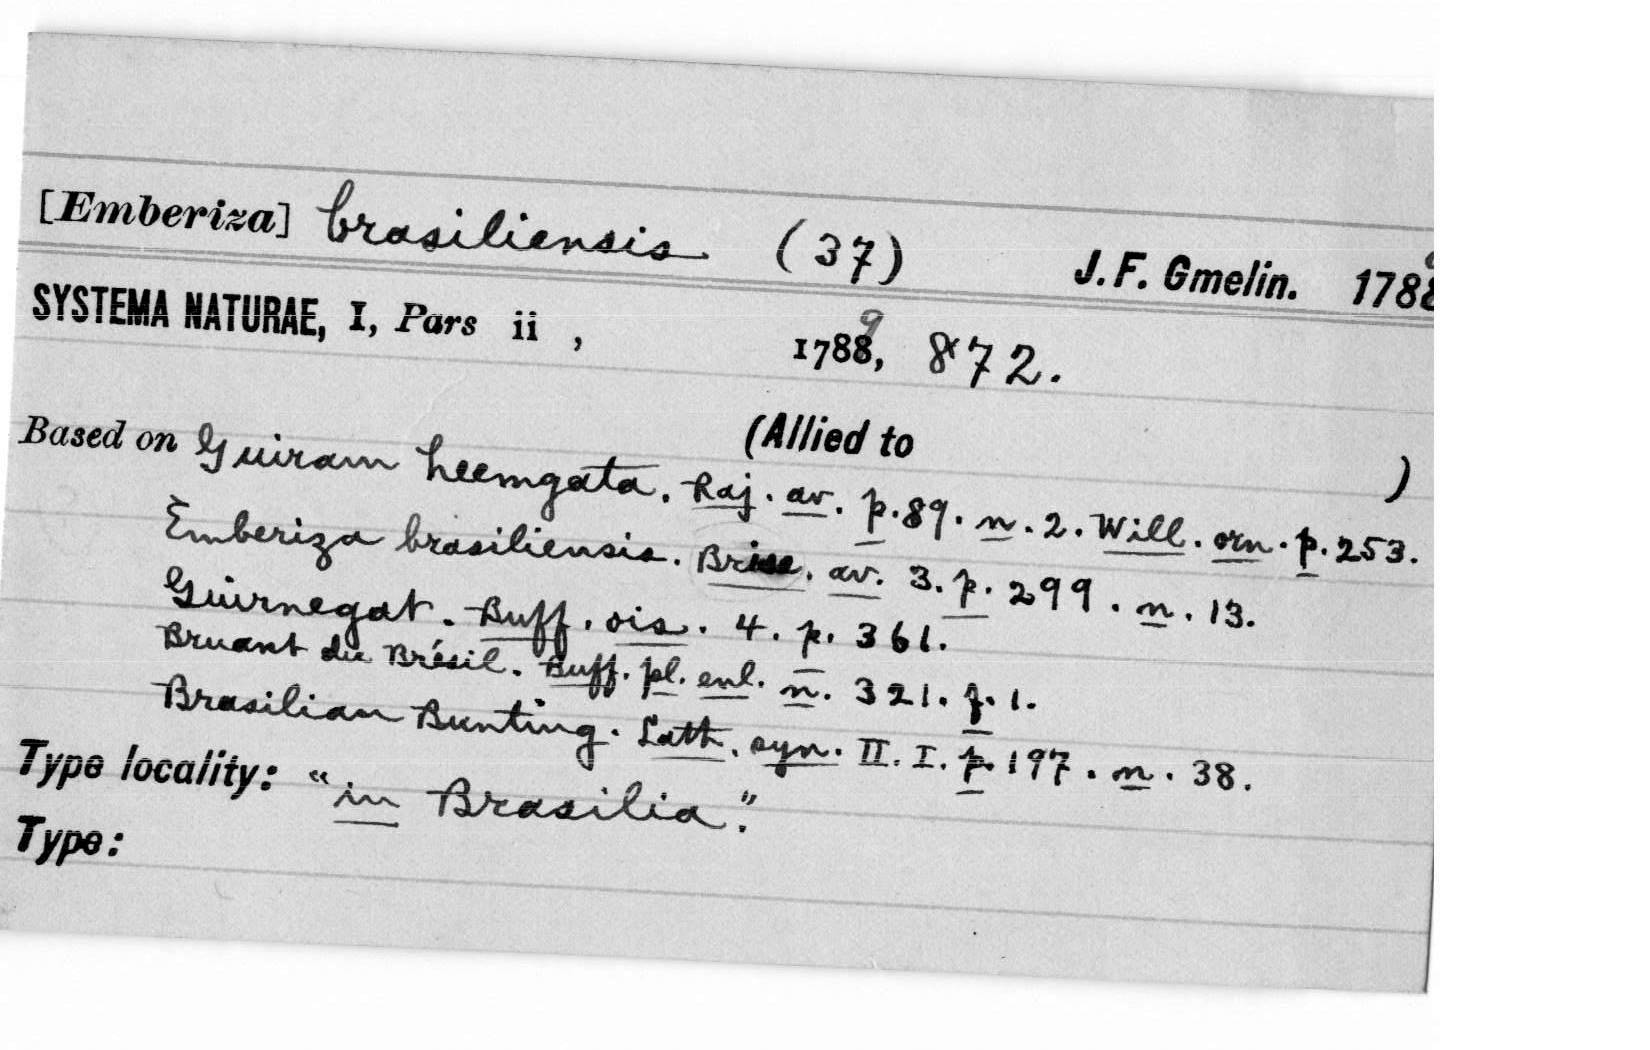 [Emberiza] brasiliensis (37) J. F. Gmelin. 1788
SYSTEMA NATURAE, I, Pars ii , 17889, 872.
(Allied to )
Based on Guiram heemgata. Raj. av. p. 89. n. 2. Will. orn. p. 253.
Emberiza brasiliensis. Briss. av. 3. p. 299. n. 13.
Guirnegat. Buff. ois. 4. p. 361.
Bruant du Brésil. Buff. pl. enl. n. 321. f. 1.
Brasilian Bunting. Lath. syn. II. I. p. 197. n. 38.
Type locality: "in Brasilia."
Type: